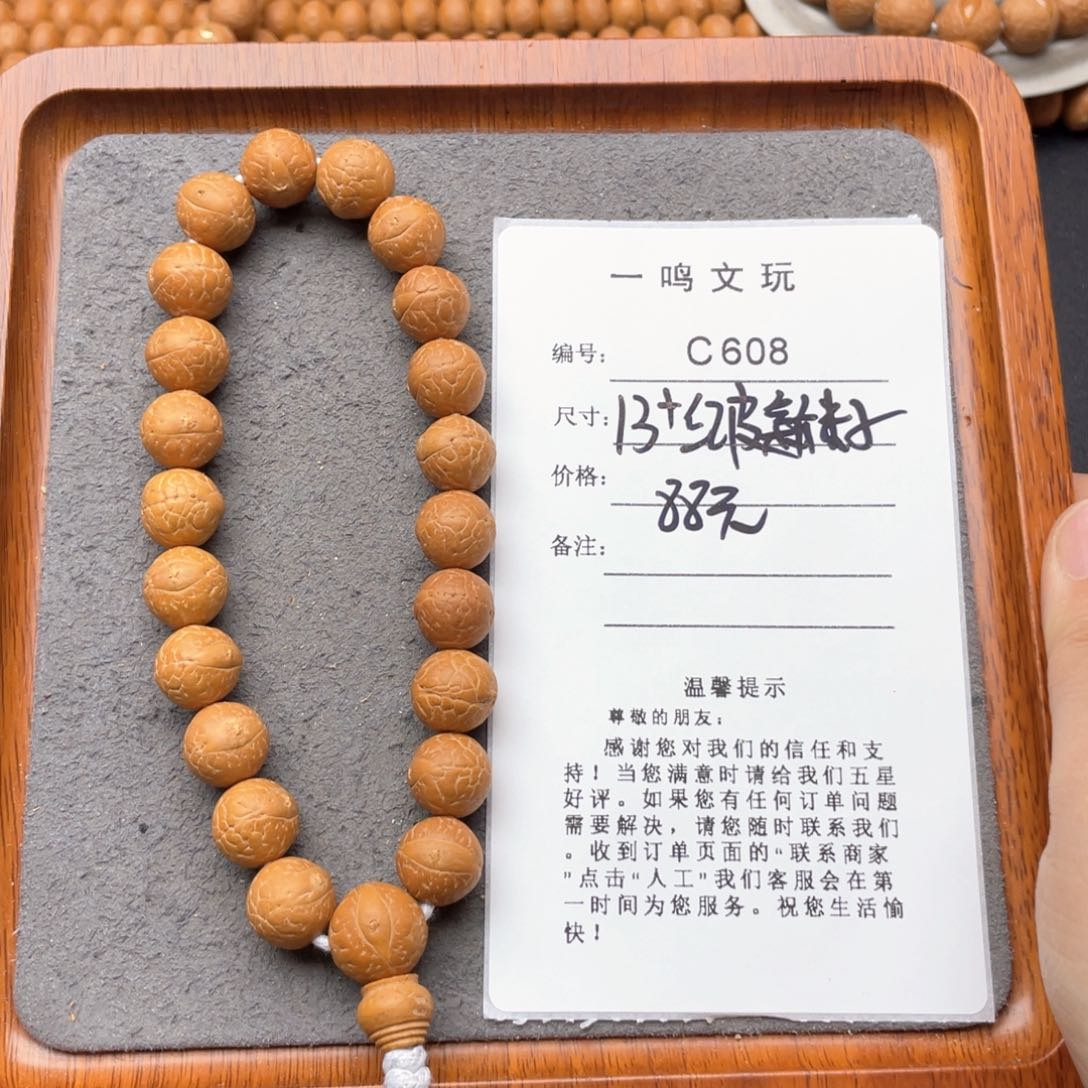 一鸣文玩
编号: C608
尺寸: 13+红皮新籽
价格: 88元
备注:
温馨提示
尊敬的朋友:
感谢您对我们的信任和支
持！当您满意时请给我们五星
好评。如果您有任何订单问题
需要解决，请您随时联系我们
。收到订单页面的“联系商家
”点击“人工”我们客服会在第
一时间为您服务。祝您生活愉
快！